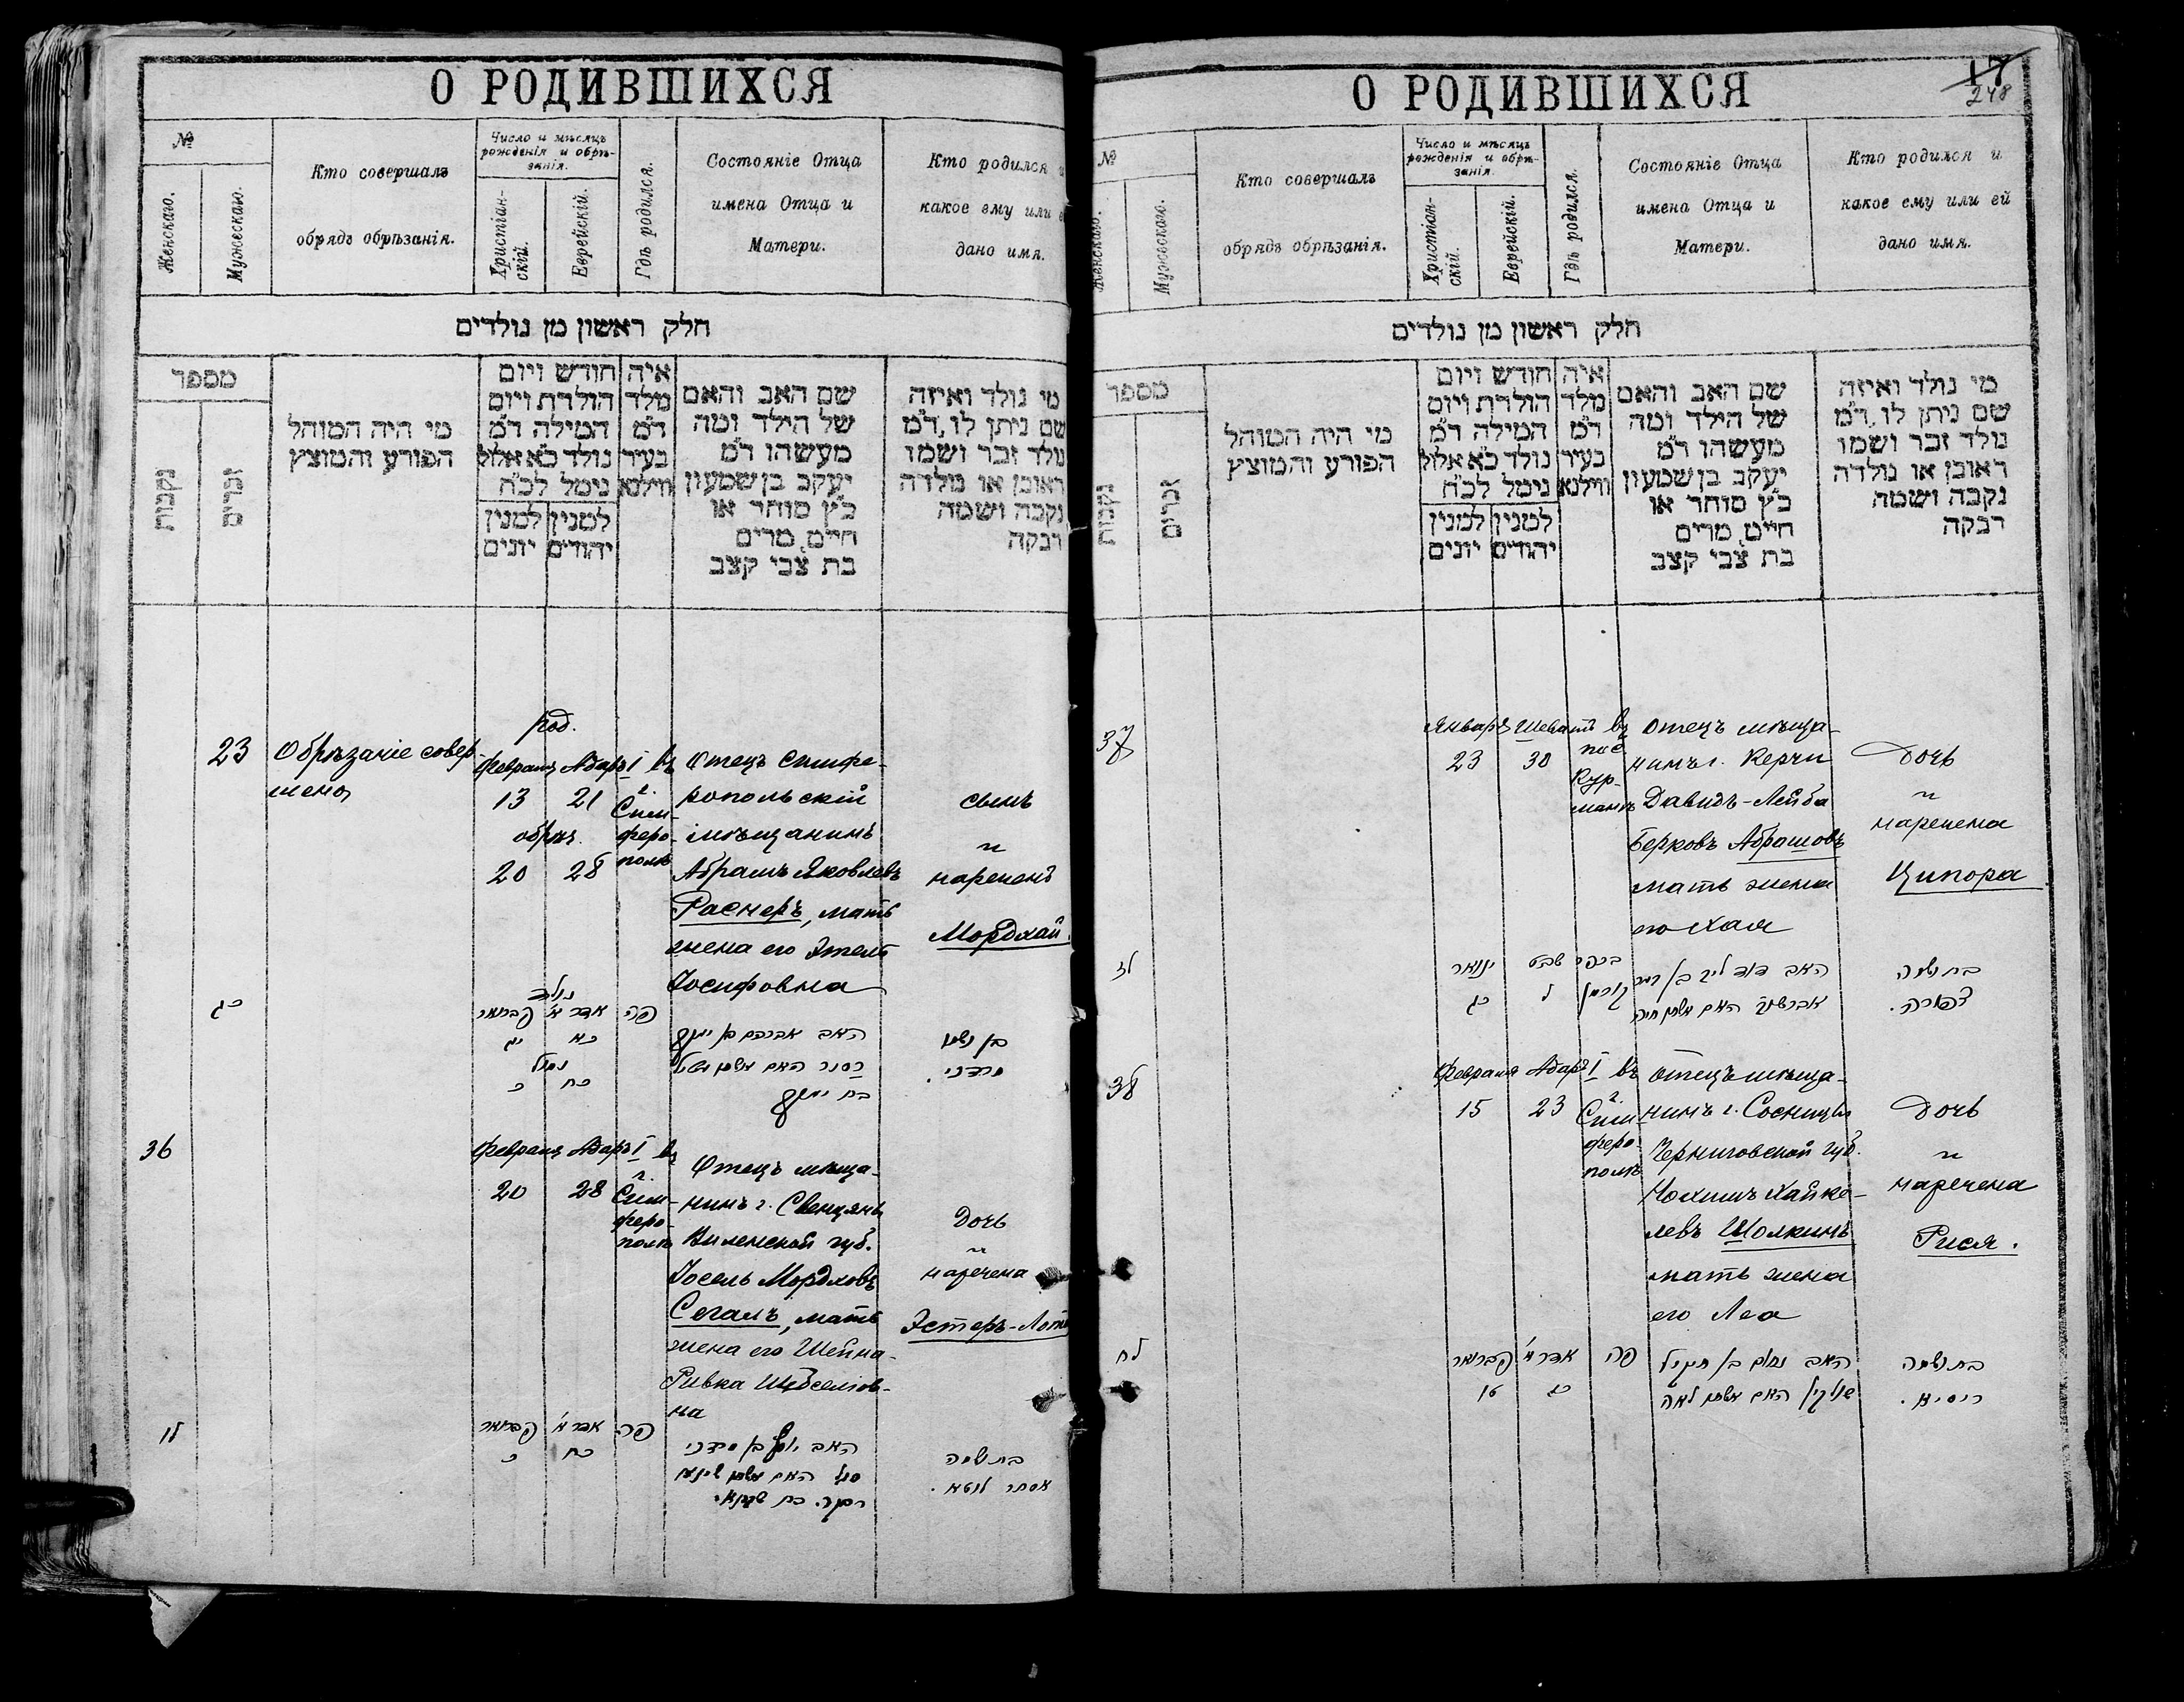 О РОДИВШИХСЯ
№
Женскаго.
Мужескаго.
Кто совершалъ
обрядъ обрѣзанія.
Число и мѣсяцъ
рожденія и обрѣ-
занія.
Христіан-
скій.
Еврейскій.
Гдѣ родился.
Состояніе Отца
имена Отца и
Матери.
Кто родился и
какое ему или
дано имя.
חלק ראשון מן נולדים
מספר
נקבות
זכרים
מי היה המוהל
הפורע והמוצץ
חודש ויום
הולדת ויום
המילה ד״מ
נולד כ״א אלול
נימל לכ״ח
למנין למנין
יהודים יונים
איה
מלד
ד״מ
בעיר
ווילנא
שם האב והאם
של הילד ומה
מעשהו ד״מ
יעקב בן שמעון
כ״ץ סוחר או
חיים, מרים
בת צבי קצב
מי נולד ואיזה
שם ניתן לו, ד״מ
נולד זכר ושמו
ראובן או נולדה
נקבה ושמה
רבקה
23
Обрѣзаніе совер-
шено
род.
Февраля Адаръ I
13 21
обрѣз.
20 28
въ
г.
Сим-
феро-
полѣ
Отецъ симфе-
ропольскій
мѣщанинъ
Абрамъ Яковлевъ
Раснеръ, мать
жена его Этель
Іосифовна
сынъ
и
нареченъ
Мордхай.
כג
נולד
פברואר אדר א׳ פה
יג כא
נימול
כ כח
האב אברהם בן יעקב
רסנר האם אשתו עטיל
בת יוסף
בן ושמו
מרדכי.
36
Февраля Адаръ I въ
20 28
г.
Сим-
феро-
полѣ
Отецъ мѣща-
нинъ г. Свенцянъ
Виленской губ.
Іосель Мордховъ
Сегалъ, мать
жена его Шейна-
Ривка Шебселіов-
на
Дочь
и
наречена
Эстеръ-Лот
לו
פברואר אדר א׳ פה
כ כח
האב יוסף בן מרדכי
סגל האם אשתו שיינא
רבקה בת
בת ושמה
אסתר לוטא.
О РОДИВШИХСЯ
17
248
№
Женскаго.
Мужескаго.
Кто совершалъ
обрядъ обрѣзанія.
Число и мѣсяцъ
рожденія и обрѣ-
занія.
Христіан-
скій.
Еврейскій.
Гдѣ родился.
Состояніе Отца
имена Отца и
Матери.
Кто родился и
какое ему или ей
дано имя.
חלק ראשון מן נולדים
מספר
נקבות
זכרים
מי היה המוהל
הפורע והמוצץ
חודש ויום
הולדת ויום
המילה ד״מ
נולד כ״א אלול
נימל לכ״ח
למנין למנין
יהודים יונים
איה
מלד
ד״מ
בעיר
ווילנא
שם האב והאם
של הילד ומה
מעשהו ד״מ
יעקב בן שמעון
כ״ץ סוחר או
חיים, מרים
בת צבי קצב
מי נולד ואיזה
שם ניתן לו, ד״מ
נולד זכר ושמו
ראובן או נולדה
נקבה ושמה
רבקה
37
Января Шеватъ въ
23 30
пос.
Кур-
манъ
Отецъ мѣща-
нинъ г. Керчи
Давидъ-Лейба
Берковъ Абрашовъ
мать жена
его Хая
Дочь
и
наречена
Ципора
לז
ינואר שבט בכפר
כג ל קורמן
האב דוד ליב בן
אברשוב האם אשתו חיה
בת ושמה
צפורה.
38
Февраля Адаръ I въ
15 23
г.
Сим-
феро-
полѣ
Отецъ мѣща-
нинъ г. Сосницы
Черниговской губ.
Нохимъ Хайке-
левъ Шолкинъ
мать жена
его Леа
Дочь
и
наречена
Рися.
לח
פברואר אדר א׳ פה
טו כג
האב נחום בן חייקיל
שולקין האם אשתו לאה
בת ושמה
ריסיא.